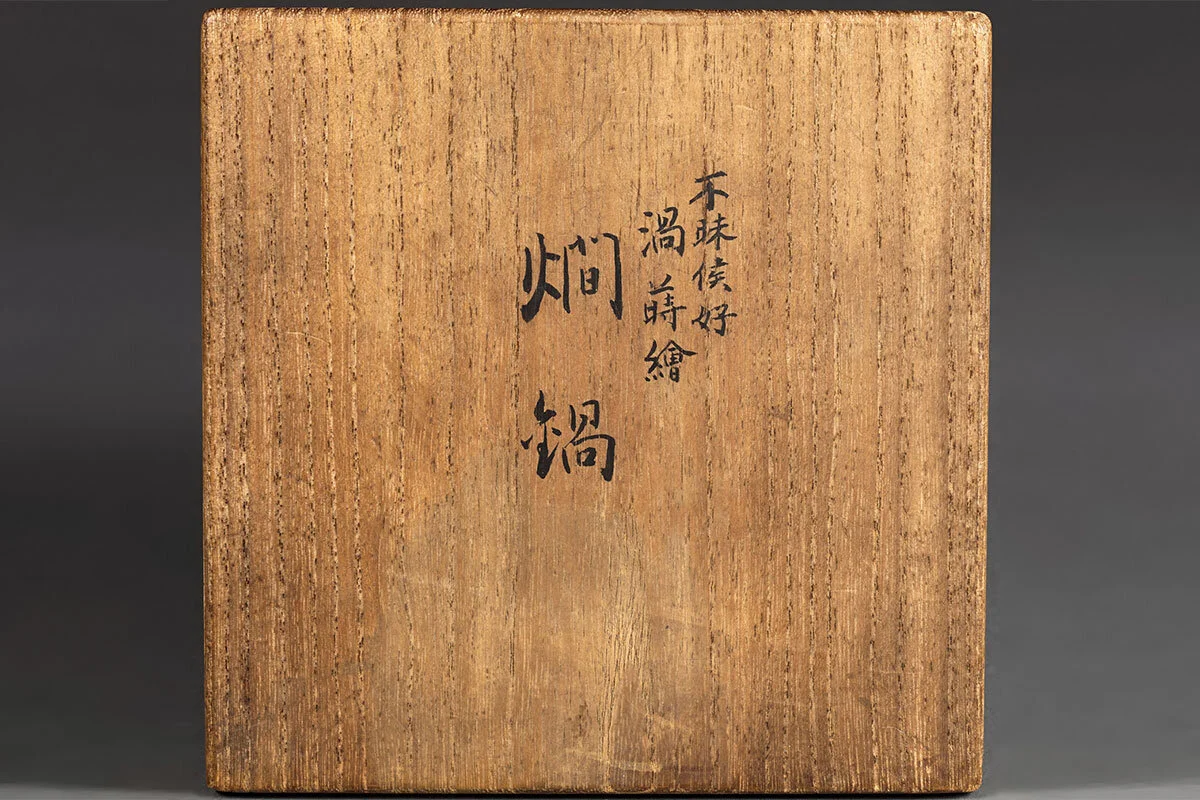 不昧侯好
渦蒔繪
燗鍋